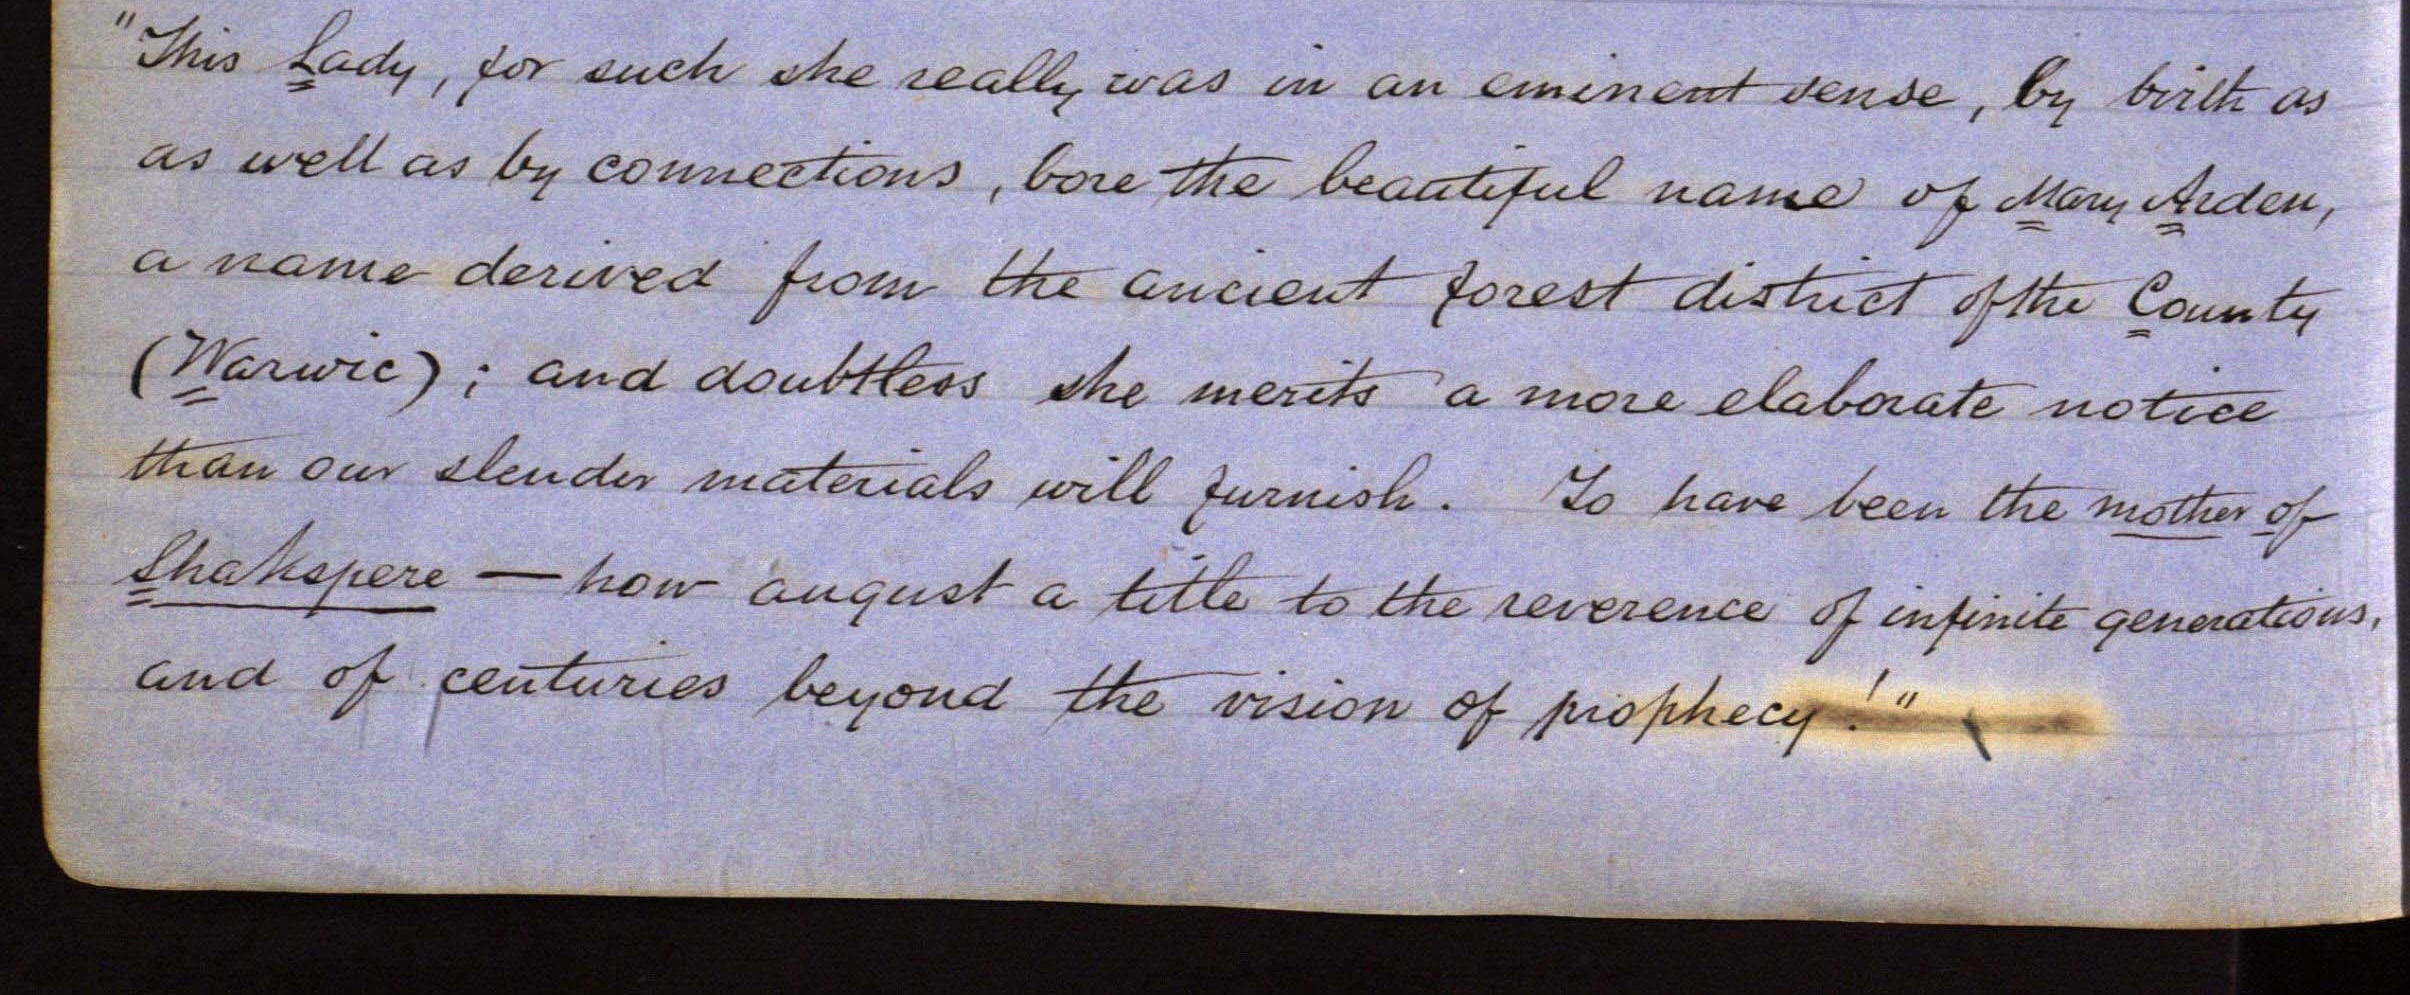 "This Lady, for such she really was in an eminent sense, by birth as
as well as by connections, bore the beautiful name of Mary Arden,
a name derived from the ancient forest district of the County
(Warwic); and doubtless she merits a more elaborate notice
than our slender materials will furnish. To have been the mother of
Shakspere — how august a title to the reverence of infinite generations,
and of centuries beyond the vision of prophecy!"